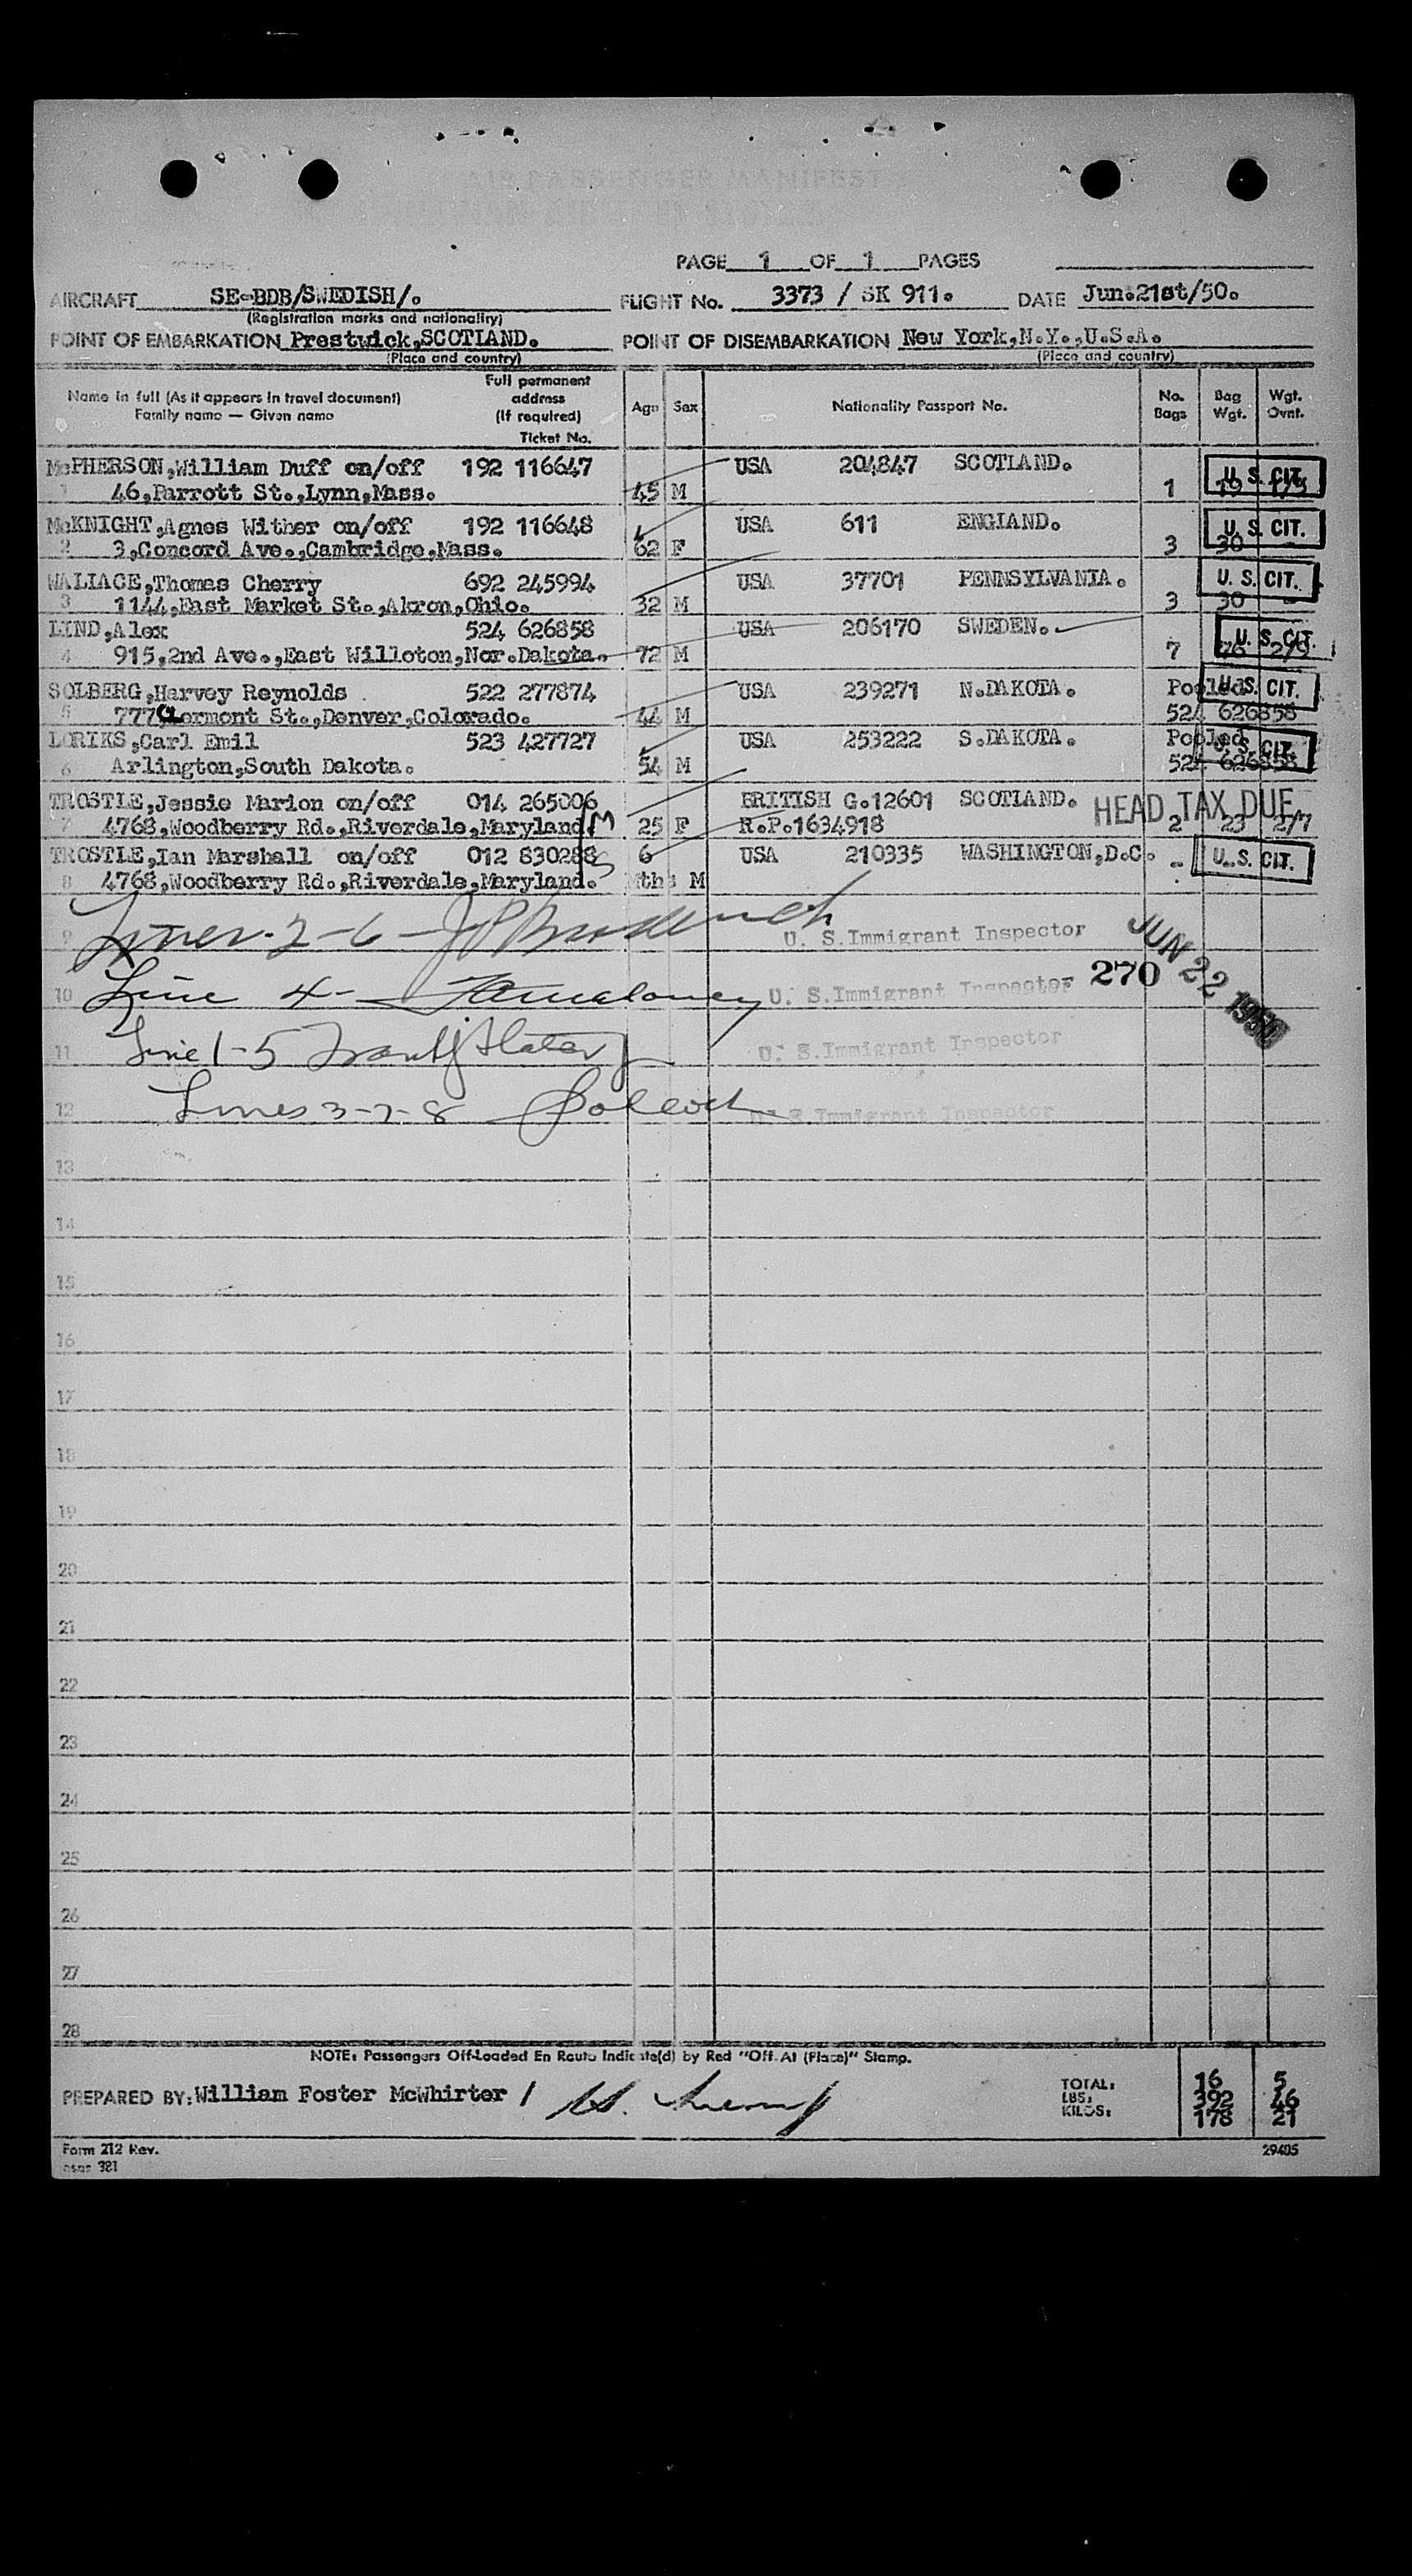 AIR PASSENGER MANIFEST
PAGE 1 OF 1 PAGES
AIRCRAFT SE-BDB/SWEDISH/. FLIGHT No. 3373 / SK 911. DATE Jun.21st/50.
(Registration marks and nationality)
POINT OF EMBARKATION Prestwick,SCOTLAND. POINT OF DISEMBARKATION New York,N.Y.,U.S.A.
(Place and country) (Place and country)
Name in full (As it appears in travel document)
Family name — Given name
Full permanent
address
(If required)
Ticket No.
Age Sex Nationality Passport No. No. Bags Bag Wgt. Wgt. Ovnt.
McPHERSON,William Duff on/off 192 116647 USA 204847 SCOTLAND. U. S. CIT.
1 46,Parrott St.,Lynn,Mass. 45 M 1 19
McKNIGHT,Agnes Wither on/off 192 116648 USA 611 ENGLAND. U. S. CIT.
2 3,Concord Ave.,Cambridge,Mass. 62 F 3 30
WALLACE,Thomas Cherry 692 245994 USA 37701 PENNSYLVANIA. U. S. CIT.
3 1144,East Market St.,Akron,Ohio. 32 M 3 30 -
LIND,Alex 524 626858 USA 206170 SWEDEN. U. S. CIT.
4 915,2nd Ave.,East Willoton,Nor.Dakota. 72 M 7 76 2/9
SOLBERG,Harvey Reynolds 522 277874 USA 239271 N.DAKOTA. Pooled U. S. CIT.
5 777 Clermont St.,Denver,Colorado. 44 M 524 626858
LORIKS,Carl Emil 523 427727 USA 253222 S.DAKOTA. Pooled U. S. CIT.
6 Arlington,South Dakota. 54 M 524 626858
TROSTLE,Jessie Marion on/off 014 265006 BRITISH G.12601 SCOTLAND. HEAD TAX DUE
7 4768,Woodberry Rd.,Riverdale,Maryland. M 25 F R.P.1634918 2 23 2/7
TROSTLE,Ian Marshall on/off 012 830288 S 6 USA 210335 WASHINGTON,D.C. - U. S. CIT.
8 4768,Woodberry Rd.,Riverdale,Maryland. Mths M
9 Lines-2-6- U. S. Immigrant Inspector
10 Line 4- U. S. Immigrant Inspector 270 JUN 22 1950
11 Line 1-5 U. S. Immigrant Inspector
12 Lines 3-7-8 U. S. Immigrant Inspector
13
14
15
16
17
18
19
20
21
22
23
24
25
26
27
28
NOTE: Passengers Off-Loaded En Route Indicate(d) by Red "Off At (Place)" Stamp.
PREPARED BY: William Foster McWhirter /
TOTAL: 16 5
LBS: 392 46
KILOS: 178 21
Form 212 Rev.
29405